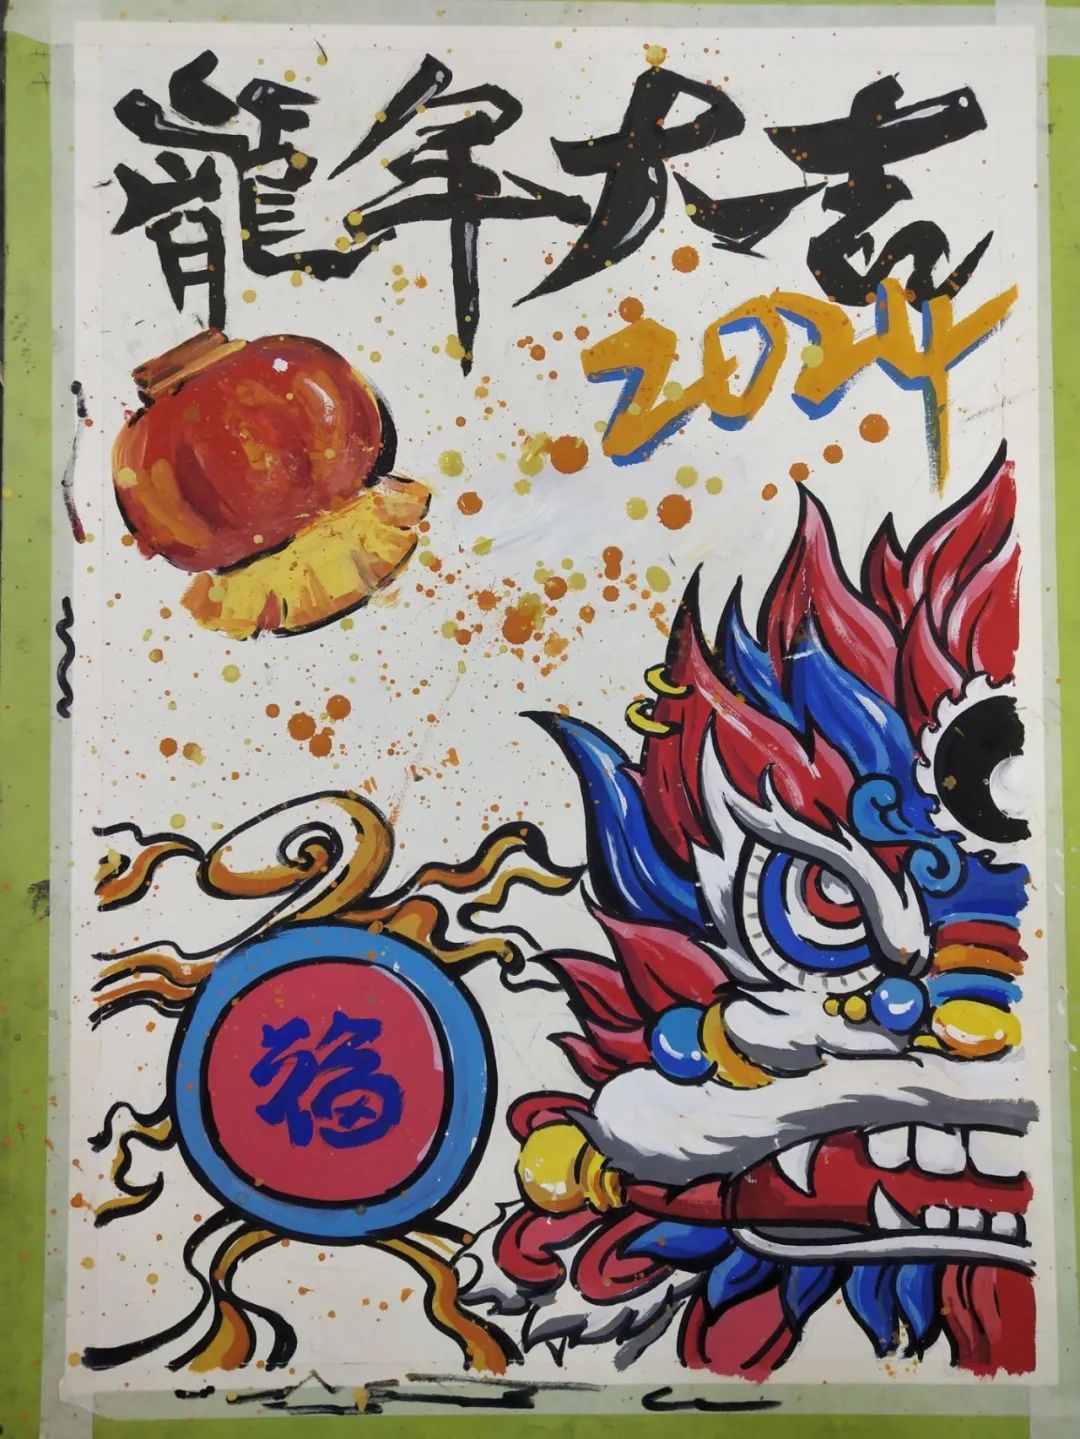 龍年大吉
2024
福